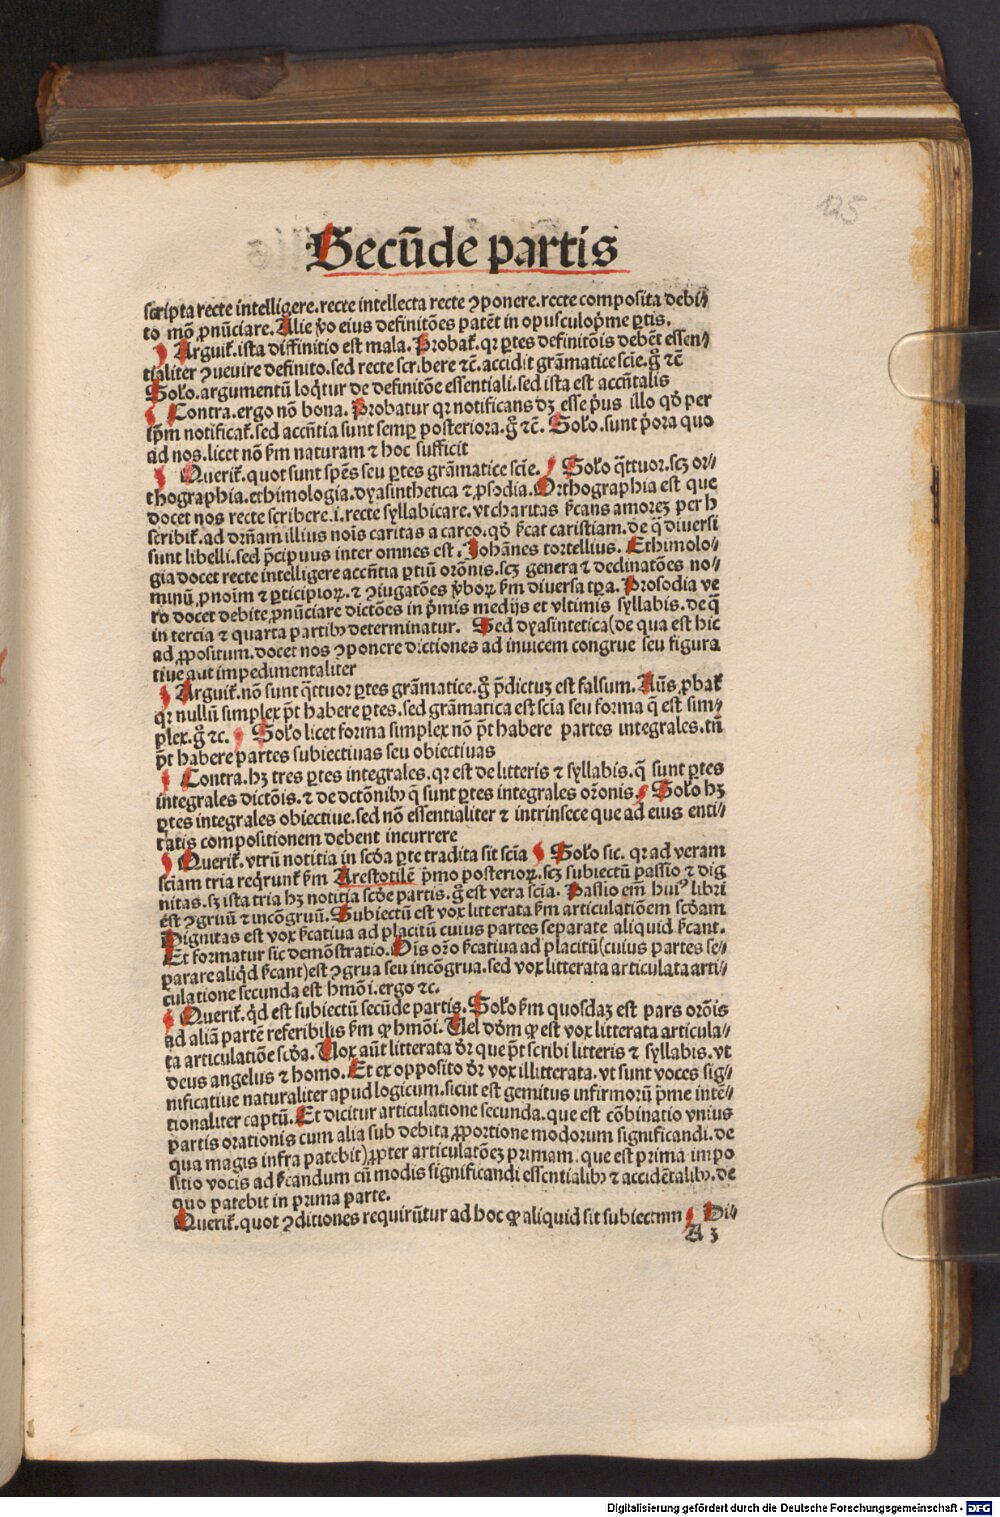 125
Secūde partis
scripta recte intelligere.recte intellecta recte ꝯponere.recte composita debi⸗
to mō ꝓnūciare. Alie ꝟo eius definitōes patēt in opusculo p̄me ꝑtis.
Arguiť.ista diffinitio est mala. Probať.qꝛ ꝑtes definitōis debēt essen⸗
tialiter ꝯuenire definito.sed recte scribere ⁊c̄.accidit grāmatice scīe.g̊ ⁊c̄
Solo.argumentū loq̄tur de definitōe essentiali.sed ista est accn̄talis
Contra.ergo nō bona. Probatur qꝛ notificans dꝫ esse p̄us illo qd̓ per
ip̄m notificať.sed accn̄tia sunt semꝑ posteriora.g̊ ⁊c̄. Solo.sunt p̄ora quo
ad nos.licet nō ẜm naturam ⁊ hoc sufficit
Queriť.quot sunt spēs seu ꝑtes grāmatice scīe. Solo q̄ttuor.scꝫ or⸗
thographia.ethimologia.dyasinthetica ⁊ ꝓsodia. Orthographia est que
docet nos recte scribere.i.recte syllabicare.vt charitas ẜcans amoreꝫ per h
scribiť.ad dr̄nam illius noīs caritas a careo.qd̓ ẜcat caristiam.de q̄ diuersi
sunt libelli.sed p̄cipuus inter omnes est. Johānes tortellius. Ethimolo⸗
gia docet recte intelligere accn̄tia ꝑtiū orōnis.scꝫ genera ⁊ declinatōes no⸗
minū,ꝓnoīm ⁊ ꝑticipioꝝ.⁊ ꝯiugatōes ꝟboꝝ ẜm diuersa tꝑa. Prosodia ve
ro docet debite ꝓnūciare dictōes in p̄mis medijs et vltimis syllabis.de q̄
in tercia ⁊ quarta partibꝫ determinatur. Sed dyasintetica(de qua est hic
ad ꝓpositum.docet nos ꝯponere dictiones ad inuicem congrue seu figura
tiue aut impedimentaliter
Arguiť.nō sunt q̄ttuor ꝑtes grāmatice.g̊ p̄dictuꝫ est falsum. Añs ꝓbať
qꝛ nullū simplex pōt habere ꝑtes.sed grāmatica est scīa seu forma q̄ est sim⸗
plex.g̊ ⁊c. Solo licet forma simplex nō pōt habere partes integrales.tn̄
pōt habere partes subiectiuas seu obiectiuas
Contra.hꝫ tres ꝑtes integrales.qꝛ est de litteris ⁊ syllabis.q̄ sunt ꝑtes
integrales dictōis.⁊ de dctōnibꝫ q̄ sunt ꝑtes integrales orōnis. Solo hꝫ
ꝑtes integrales obiectiue.sed nō essentialiter ⁊ intrinsece que ad eius enti⸗
tatis compositionem debent incurrere
Queriť.vtrū notitia in scd̓a ꝑte tradita sit scīa Solo sic. qꝛ ad veram
scīam tria req̄runť ẜm Arestotilē p̄mo posterioꝝ.scꝫ subiectū passio ⁊ dig
nitas.sꝫ ista tria hꝫ notitia scd̓e partis.g̊ est vera scīa. Passio em̄ huiꝰ libri
est ꝯgruū ⁊ incōgruū. Subiectū est vox litterata ẜm articulatiōem scd̓am
Dignitas est vox ẜcatiua ad placitū cuius partes separate aliquid ẜcant.
Et formatur sic demōstratio. Ois or̄o ẜcatiua ad placitū(cuius partes se⸗
parare aliq̄d ẜcant)est ꝯgrua seu incōgrua.sed vox litterata articulata arti⸗
culatione secunda est hmōi.ergo ⁊c.
Queriť.q̄d est subiectū secūde partis. Solo ẜm quosdaꝫ est pars orōis
ad aliā partē referibilis ẜm ꝙ hmōi. Uel dd̓m ꝙ est vox litterata articula⸗
ta articulatiōe scd̓a. Uox aūt litterata d̓r que pōt scribi litteris ⁊ syllabis.vt
deus angelus ⁊ homo. Et ex opposito d̓r vox illitterata.vt sunt voces sig⸗
nificatiue naturaliter apud logicum.sicut est gemitus infirmorū p̄me intē⸗
tionaliter captū. Et dicitur articulatione secunda.que est cōbinatio vnius
partis orationis cum alia sub debita ꝓportione modorum significandi.de
qua magis infra patebit)ꝓpter articulatōeꝫ primam.que est prima impo
sitio vocis ad ẜcandum cū modis significandi essentialibꝫ ⁊ accidētalibꝫ.de
quo patebit in prima parte.
Queriť.quot ꝯditiones requirūtur ad hoc ꝙ aliquid sit subiectum Di⸗
A 3
Digitalisierung gefördert durch die Deutsche Forschungsgemeinschaft - DFG